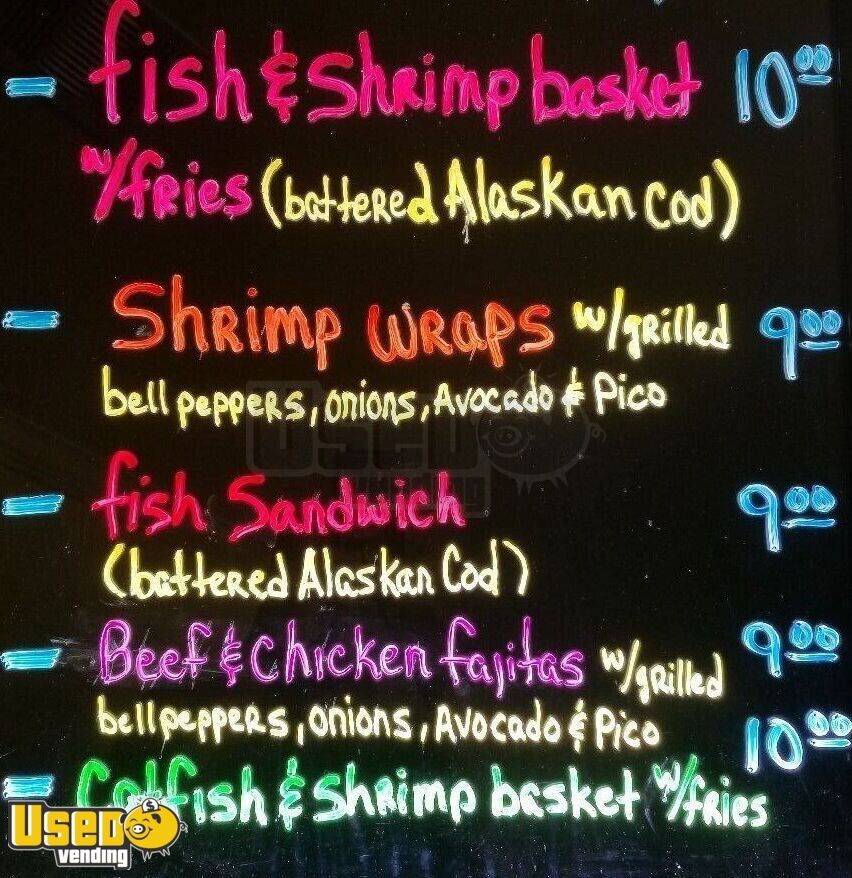 - fish & Shrimp basket 10.00
w/fries (battered Alaskan Cod)
- Shrimp wraps w/grilled 9.00
bell peppers, onions, Avocado & Pico
USED
VENDING
- fish Sandwich 9.00
(battered Alaskan Cod)
- Beef & Chicken fajitas w/grilled 9.00
bell peppers, onions, Avocado & Pico 10.00
- Catfish & Shrimp basket w/fries
USED
vending